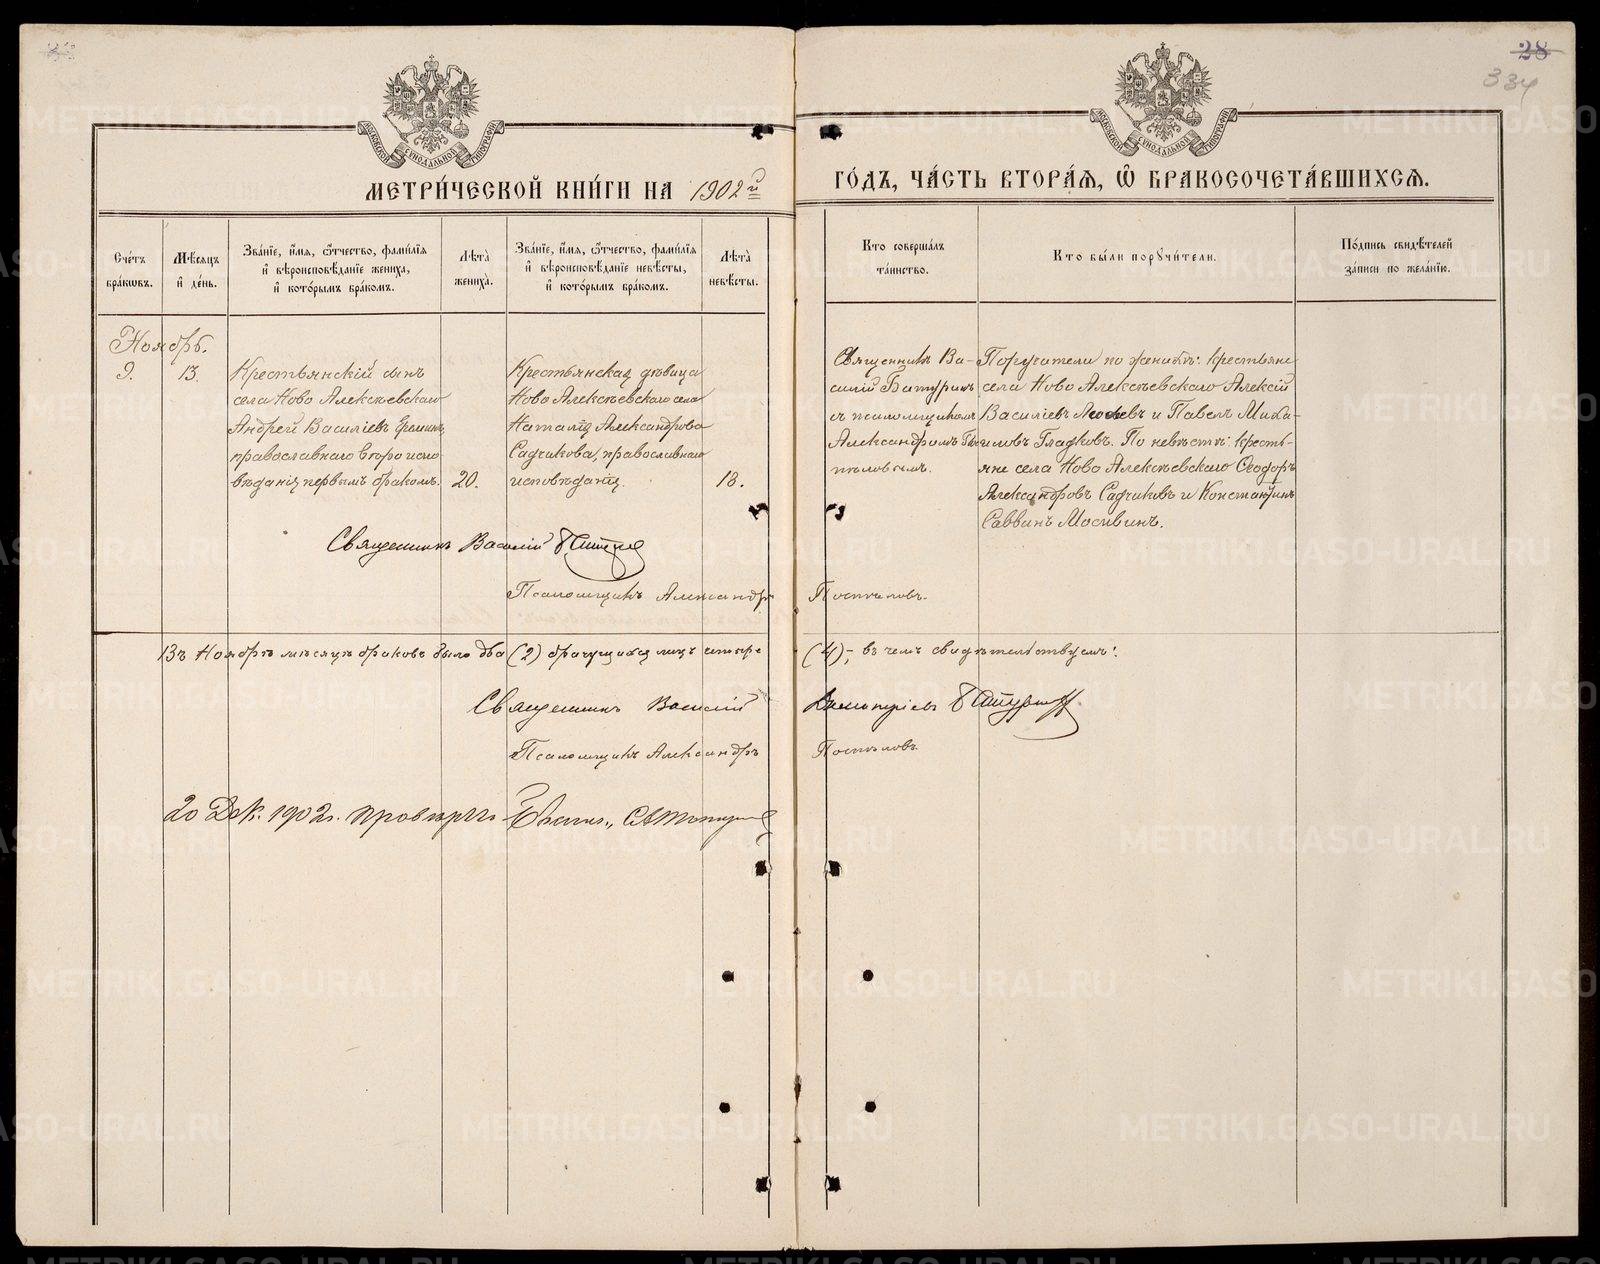 28
334
МОСКОВСКОЙ СѴНОДАЛЬНОЙ ТИПОГРАФІИ
МОСКОВСКОЙ СѴНОДАЛЬНОЙ ТИПОГРАФІИ
МЕТРИ́ЧЕСКОЙ КНИ́ГИ НА 1902й
ГО́ДЪ, ЧА́СТЬ ВТОРА́Ѧ, Ѽ БРАКОСОЧЕТА́ВШИХСѦ.
Сче́тъ бра́кѡвъ.
Мѣ́сяцъ и де́нь.
Зва́нїе, и́мя, ѻ҆́тчество, фами́лїя и вѣроисповѣ́данїе жениха̀, и кото́рымъ бра́комъ.
Лѣ́та жениха̀.
Зва́нїе, и́мя, ѻ҆́тчество, фами́лїя и вѣроисповѣ́данїе невѣ́сты, и кото́рымъ бра́комъ.
Лѣ́та невѣ́сты.
Кто соверша́лъ та́инство.
Кто бы́ли порꙋчи́тели.
По́дпись свидѣ́телей за́писи по жела́нїю.
Ноябрь.
9. 13.
Крестьянскій сынъ
села Ново Алексѣевскаго
Андрей Василіевъ
православнаго вѣроиспо
вѣданія первымъ бракомъ. 20.
Крестьянская дѣвица
Ново Алексѣевскаго села
Наталія Александрова
Садчикова, православнаго
исповѣданія. 18.
Священникъ Ва-
силій Батуринъ
съ псаломщикомъ
Александромъ По
спѣловымъ.
Поручители по женихѣ: крестьяне
села Ново Алексѣевскаго Алексѣй
Василіевъ и Павелъ Миха-
иловъ Гладковъ. По невѣстѣ: кресть-
яне села Ново Алексѣевскаго Ѳеодоръ
Александровъ Садчиковъ и Константинъ
Саввинъ Москвинъ.
Священникъ Василій Батуринъ
Псаломщикъ Александръ Поспѣловъ.
Въ Ноябрѣ мѣсяцѣ браковъ было два (2) брачущихся лицъ четыре (4); въ чемъ свидѣтельствуемъ:
Священникъ Василій Димитріевъ Батуринъ
Псаломщикъ Александръ Поспѣловъ
20 Дек. 1902 г. провѣрялъ
METRIKI.GASO-URAL.RU